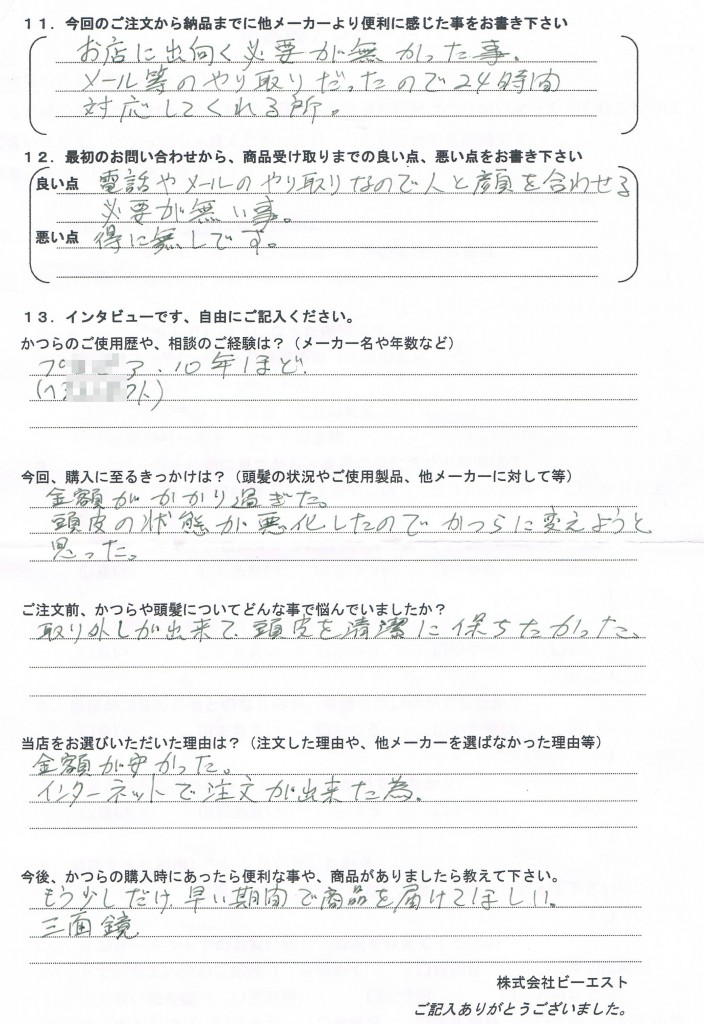 １１．今回のご注文から納品までに他メーカーより便利に感じた事をお書き下さい
お店に出向く必要が無かった事。
メール等のやり取りだったので24時間
対応してくれる所。
１２．最初のお問い合わせから、商品受け取りまでの良い点、悪い点をお書き下さい
良い点 電話やメールのやり取りなので人と顔を合わせる
必要が無い事。
悪い点 得に無しです。
１３．インタビューです、自由にご記入ください。
かつらのご使用歴や、相談のご経験は？（メーカー名や年数など）
ア．10年ほど．
今回、購入に至るきっかけは？（頭髪の状況やご使用製品、他メーカーに対して等）
金額がかかり過ぎた。
頭皮の状態が悪化したのでかつらに変えようと
思った。
ご注文前、かつらや頭髪についてどんな事で悩んでいましたか？
取り外しが出来て、頭皮を清潔に保ちたかった。
当店をお選びいただいた理由は？（注文した理由や、他メーカーを選ばなかった理由等）
金額が安かった。
インターネットで注文が出来た為。
今後、かつらの購入時にあったら便利な事や、商品がありましたら教えて下さい。
もう少しだけ、早い期間で商品を届けてほしい。
三面鏡．
株式会社ビーエスト
ご記入ありがとうございました。